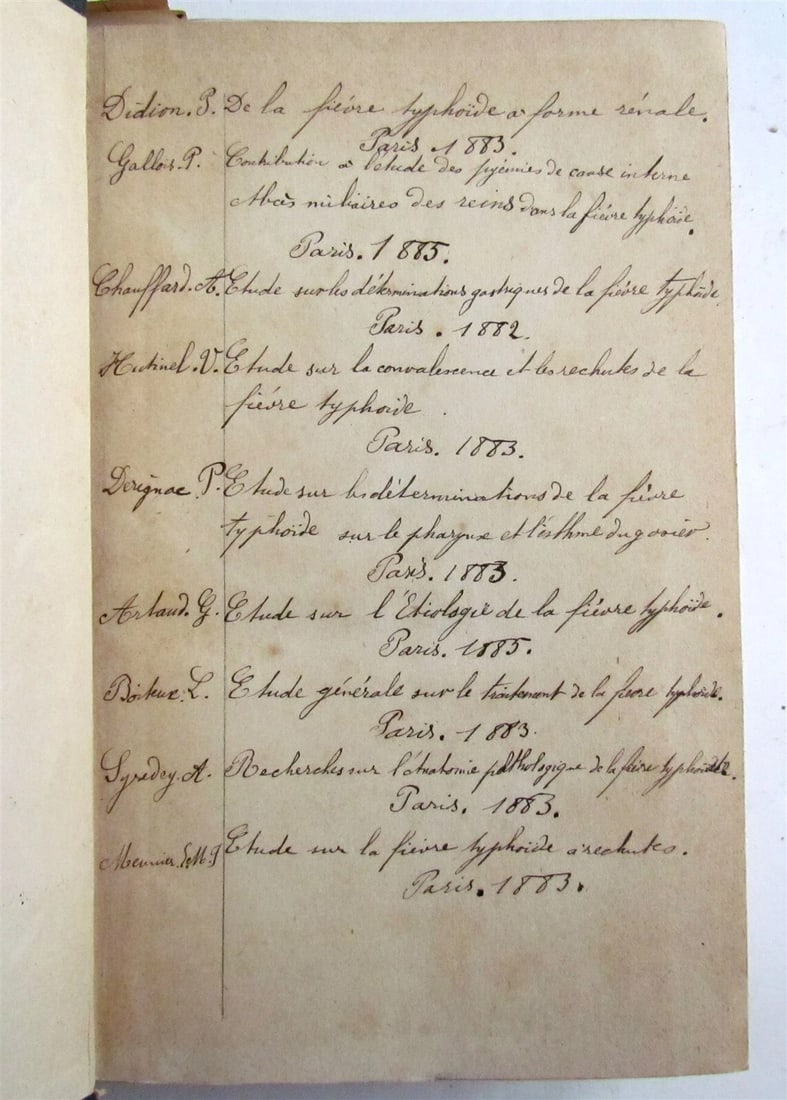 Didion. P. De la fièvre typhoïde a forme rénale.
Paris 1883.
Gallois. P. Contribution a l'étude des pyémies de cause interne
Abcès miliaires des reins dans la fièvre typhoïde.
Paris. 1885.
Chauffard. A. Etude sur les déterminations gastriques de la fièvre typhoïde.
Paris. 1882.
Hutinel. V. Etude sur la convalescence et les rechutes de la
fièvre typhoïde.
Paris. 1883.
Derignac. P. Etude sur les déterminations de la fièvre
typhoïde sur le pharynx et l'isthme du gosier.
Paris. 1883.
Artaud. G. Etude sur l'Etiologie de la fièvre typhoïde.
Paris. 1885.
Boiteux. L. Etude générale sur le traitement de la fièvre typhoïde.
Paris. 1883.
Syredey. A. Recherches sur l'Anatomie pathologique de la fièvre typhoïde.
Paris. 1883.
Meunier. Etude sur la fièvre typhoïde a rechutes.
Paris. 1883.